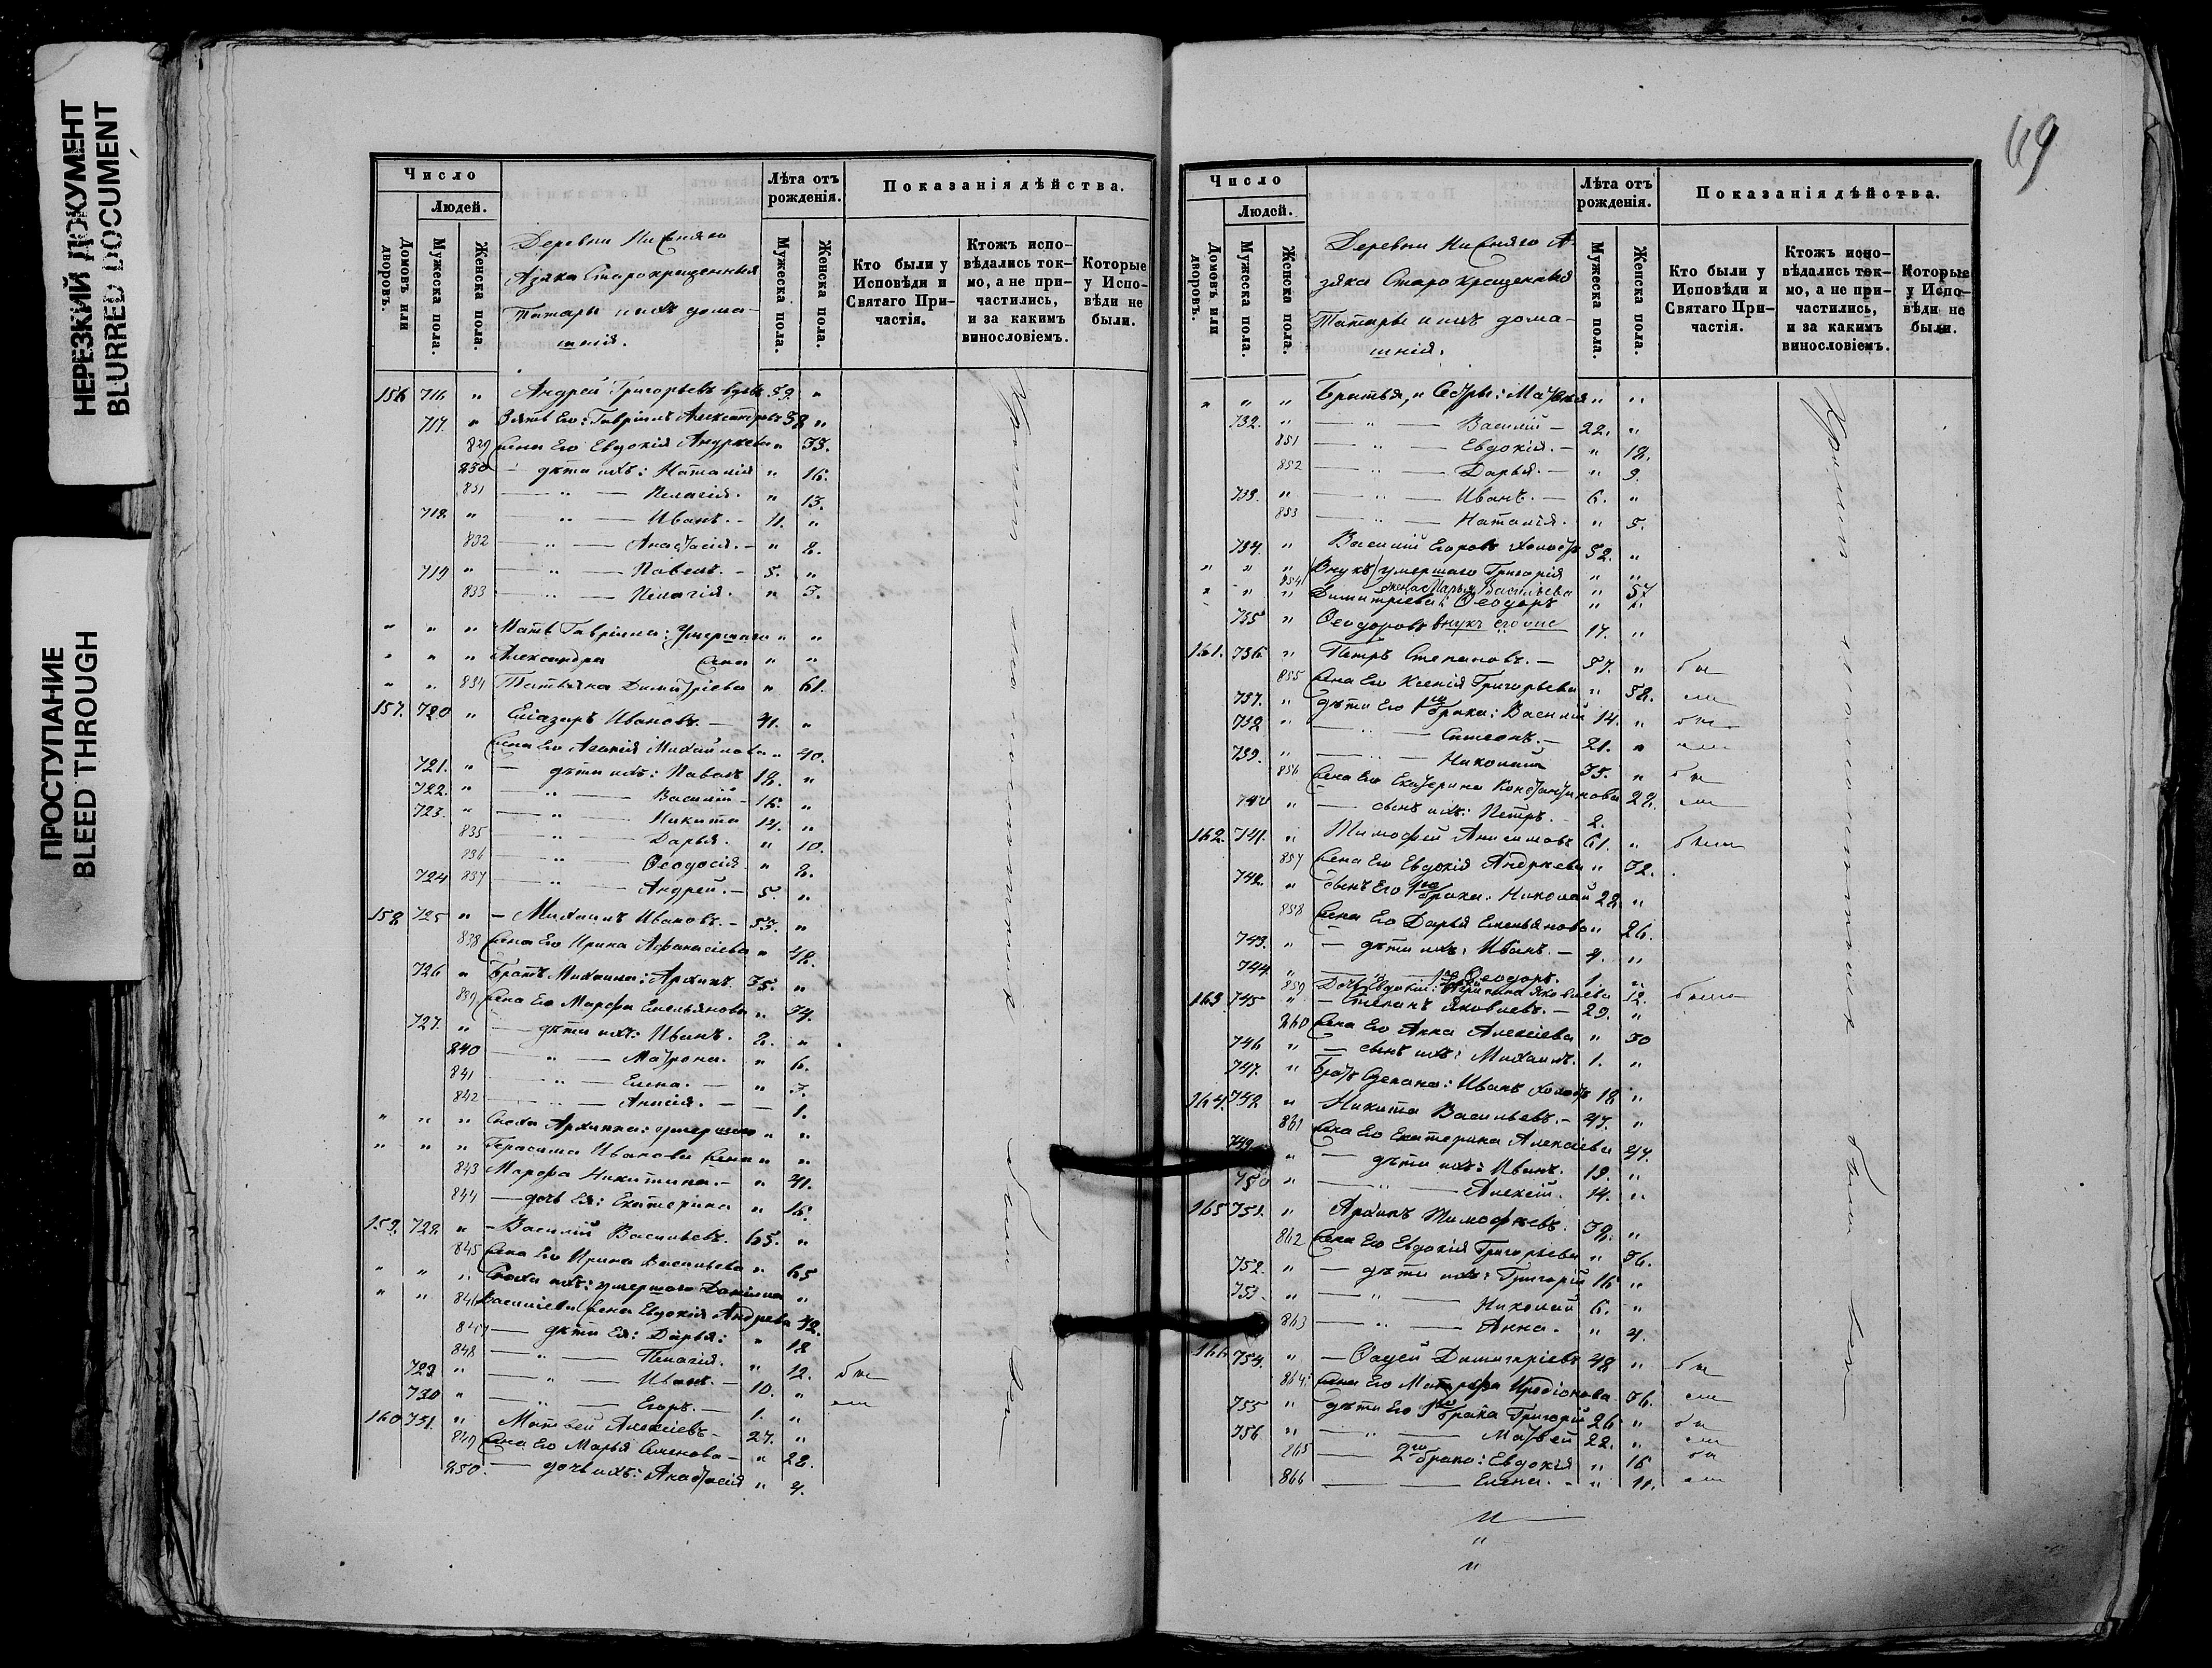 НЕРЕЗКИЙ ДОКУМЕНТ
BLURRED DOCUMENT
ПРОСТУПАНИЕ
BLEED THROUGH
Число
Людей.
Домовъ или дворовъ.
Мужеска пола.
Женска пола.
Деревни Нижняго
Азяка Старокрещенныя
Татары и ихъ дома-
шнія.
Лѣта отъ рожденія.
Мужеска пола.
Женска пола.
Показанія дѣйства.
Кто были у Исповѣди и Святаго При-частія.
Ктожъ испо-вѣдались ток-мо, а не при-частились, и за какимъ винословіемъ.
Которые у Испо-вѣди не были.
156 716 " Андрей Григорьевъ вдовъ 59. "
717. " Зять Его: Гавріилъ Александровъ 38 "
829 Жена Его Евдокія Андреева " 33.
830 — дѣти ихъ: Наталія " 16.
831 — " — Пелагія. " 13.
718 " — " — Иванъ. - 11. "
832 — " — Анастасія. - " 8.
719 " — " — Павелъ. - 5. "
833 — " — Пелагія. " 3.
" " " Мать Гавріила: Умершаго " "
" " " Александра Жена " "
" " 834 Татьяна Димитріева " 61.
157. 720 " Елѣазаръ Ивановъ. — 41. "
Жена Его Агафія Михайлова " 40.
721. " — дѣти ихъ: Павелъ 18. "
722. " — " — Василій - 16. "
723. " — " — Никита 14. "
835 — " — Дарья. " 10.
836 — " — Ѳеодосія. " 8.
724 837 — " — Андрей. - 5. "
158 725 " - Михаилъ Ивановъ. - 53. "
838 Жена Его Ирина Афанасіева " 48.
726 " Братъ Михаила: Архипъ. 35. "
839. Жена Его Марфа Емельянова " 34.
727. " — дѣти ихъ: Иванъ. 8. "
840 — " — Матрона. " 6.
841 — " — Елена. - " 3.
842 — " — Анисія. - 1.
" " " Сноха Архипа: умершаго " "
" " " Герасима Иванова Жена " "
843 Марфа Никитина. - " 41.
844 — дочь Ея: Екатерина " 16.
159. 728 " - Василій Васильевъ. 65. "
845 Жена Его Ирина Васильева " 65
" " " Сноха ихъ: умершаго Даніила "
" " 846 Василіева Жена Евдокія Андреева 42.
847 — дѣти Ея: Дарья: " 18
848 — " — Пелагія. " 12. бы
729 " — " — Иванъ. - 10. "
730 " — " — Егоръ. - 1. " ли
160 731. " Матвей Алексіевъ - 27. "
849 Жена Его Марья Семенова - " 28.
850. — дочь ихъ: Анастасія " 4.
69
Число
Людей.
Домовъ или дворовъ.
Мужеска пола.
Женска пола.
Деревни Нижняго А-
зяка Старокрещенныя
Татары и ихъ дома-
шнія.
Лѣта отъ рожденія.
Мужеска пола.
Женска пола.
Показанія дѣйства.
Кто были у Исповѣди и Святаго При-частія.
Ктожъ испо-вѣдались ток-мо, а не при-частились, и за какимъ винословіемъ.
Которые у Испо-вѣди не были.
" " " Братья, и Сестры: Матвея " "
732. " — " — Василій - 22. "
851 — " — Евдокія. - " 18.
852 — " — Дарья. - " 9.
733. " — " — Иванъ. - 6. "
853 — " — Наталія. " 5.
734. " Василій Егоровъ холостъ 52. "
" " " Внукъ умершаго Григорія " "
854 жена Марья Васильева " 57
" " " Димитріева: Ѳеодоръ " "
735 " Ѳеодоровъ внукъ 17. "
161. 736 " Петръ Степановъ. - 57. " бы
855 Жена Его Ксенія Григорьева " 58. ли
737. " дѣти Его 1го брака: Василій 14. " бы
738 " — " — Симеонъ. - 21. " ли
739. " — " — Николай 35. " бы
856 Жена Его Екатерина Константинова 28. ли
740 " — сынъ ихъ: Петръ. - 2.
162. 741. " Тимофей Анисимовъ 61. " были
857 Жена Его Евдокія Андреева " 32.
742. " сынъ Его 1го брака: Николай 28 "
858 Жена Его Дарья Емельянова " 26.
743. " — дѣти ихъ: Иванъ. - 4. "
744. " — Ѳеодоръ. 1. "
859 Дочь Евдокіи: Яковлева 12. были
163 745 " - Степанъ Яковлевъ. - 29. "
860 Жена Его Анна Алексіева " 30
746 " — сынъ ихъ: Михаилъ. 1. "
747. " Братъ Степана: Иванъ холостъ 18 "
164. 748 " Никита Васильевъ. - 47. "
861 Жена Его Екатерина Алексіева 47.
749. " — дѣти ихъ: Иванъ. 19. "
750 " — " — Алексій. 14. "
165 751. " Архипъ Тимофеевъ. 38. "
862 Жена Его Евдокія Григорьева " 36.
752. " — дѣти ихъ: Григорій 16 "
753. " — " — Николай 6. "
863 — " — Анна. " 4.
166 754. " — Ѳадей Димитріевъ 48 " бы
864. Жена Его Марфа Иродіонова 36. ли
755 " дѣти Его 1го брака Григорій 26 " бы
756 " — " — Матвей 22. " ли
865 — 2го брака: Евдокія " 15 бы
866 — — Елена. - " 11. ли